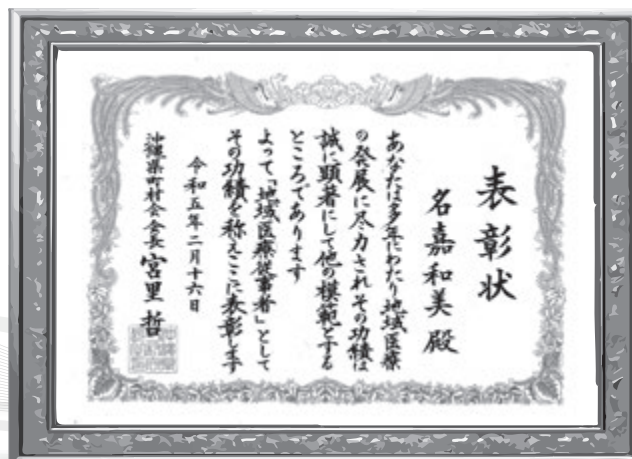 表彰状
名嘉和美殿
あなたは多年にわたり地域医療
の発展に尽力されその功績は
誠に顕著にして他の模範とする
ところであります
よって「地域医療従事者」として
その功績を称えここに表彰します
令和五年二月十六日
沖縄県町村会会長 宮里哲